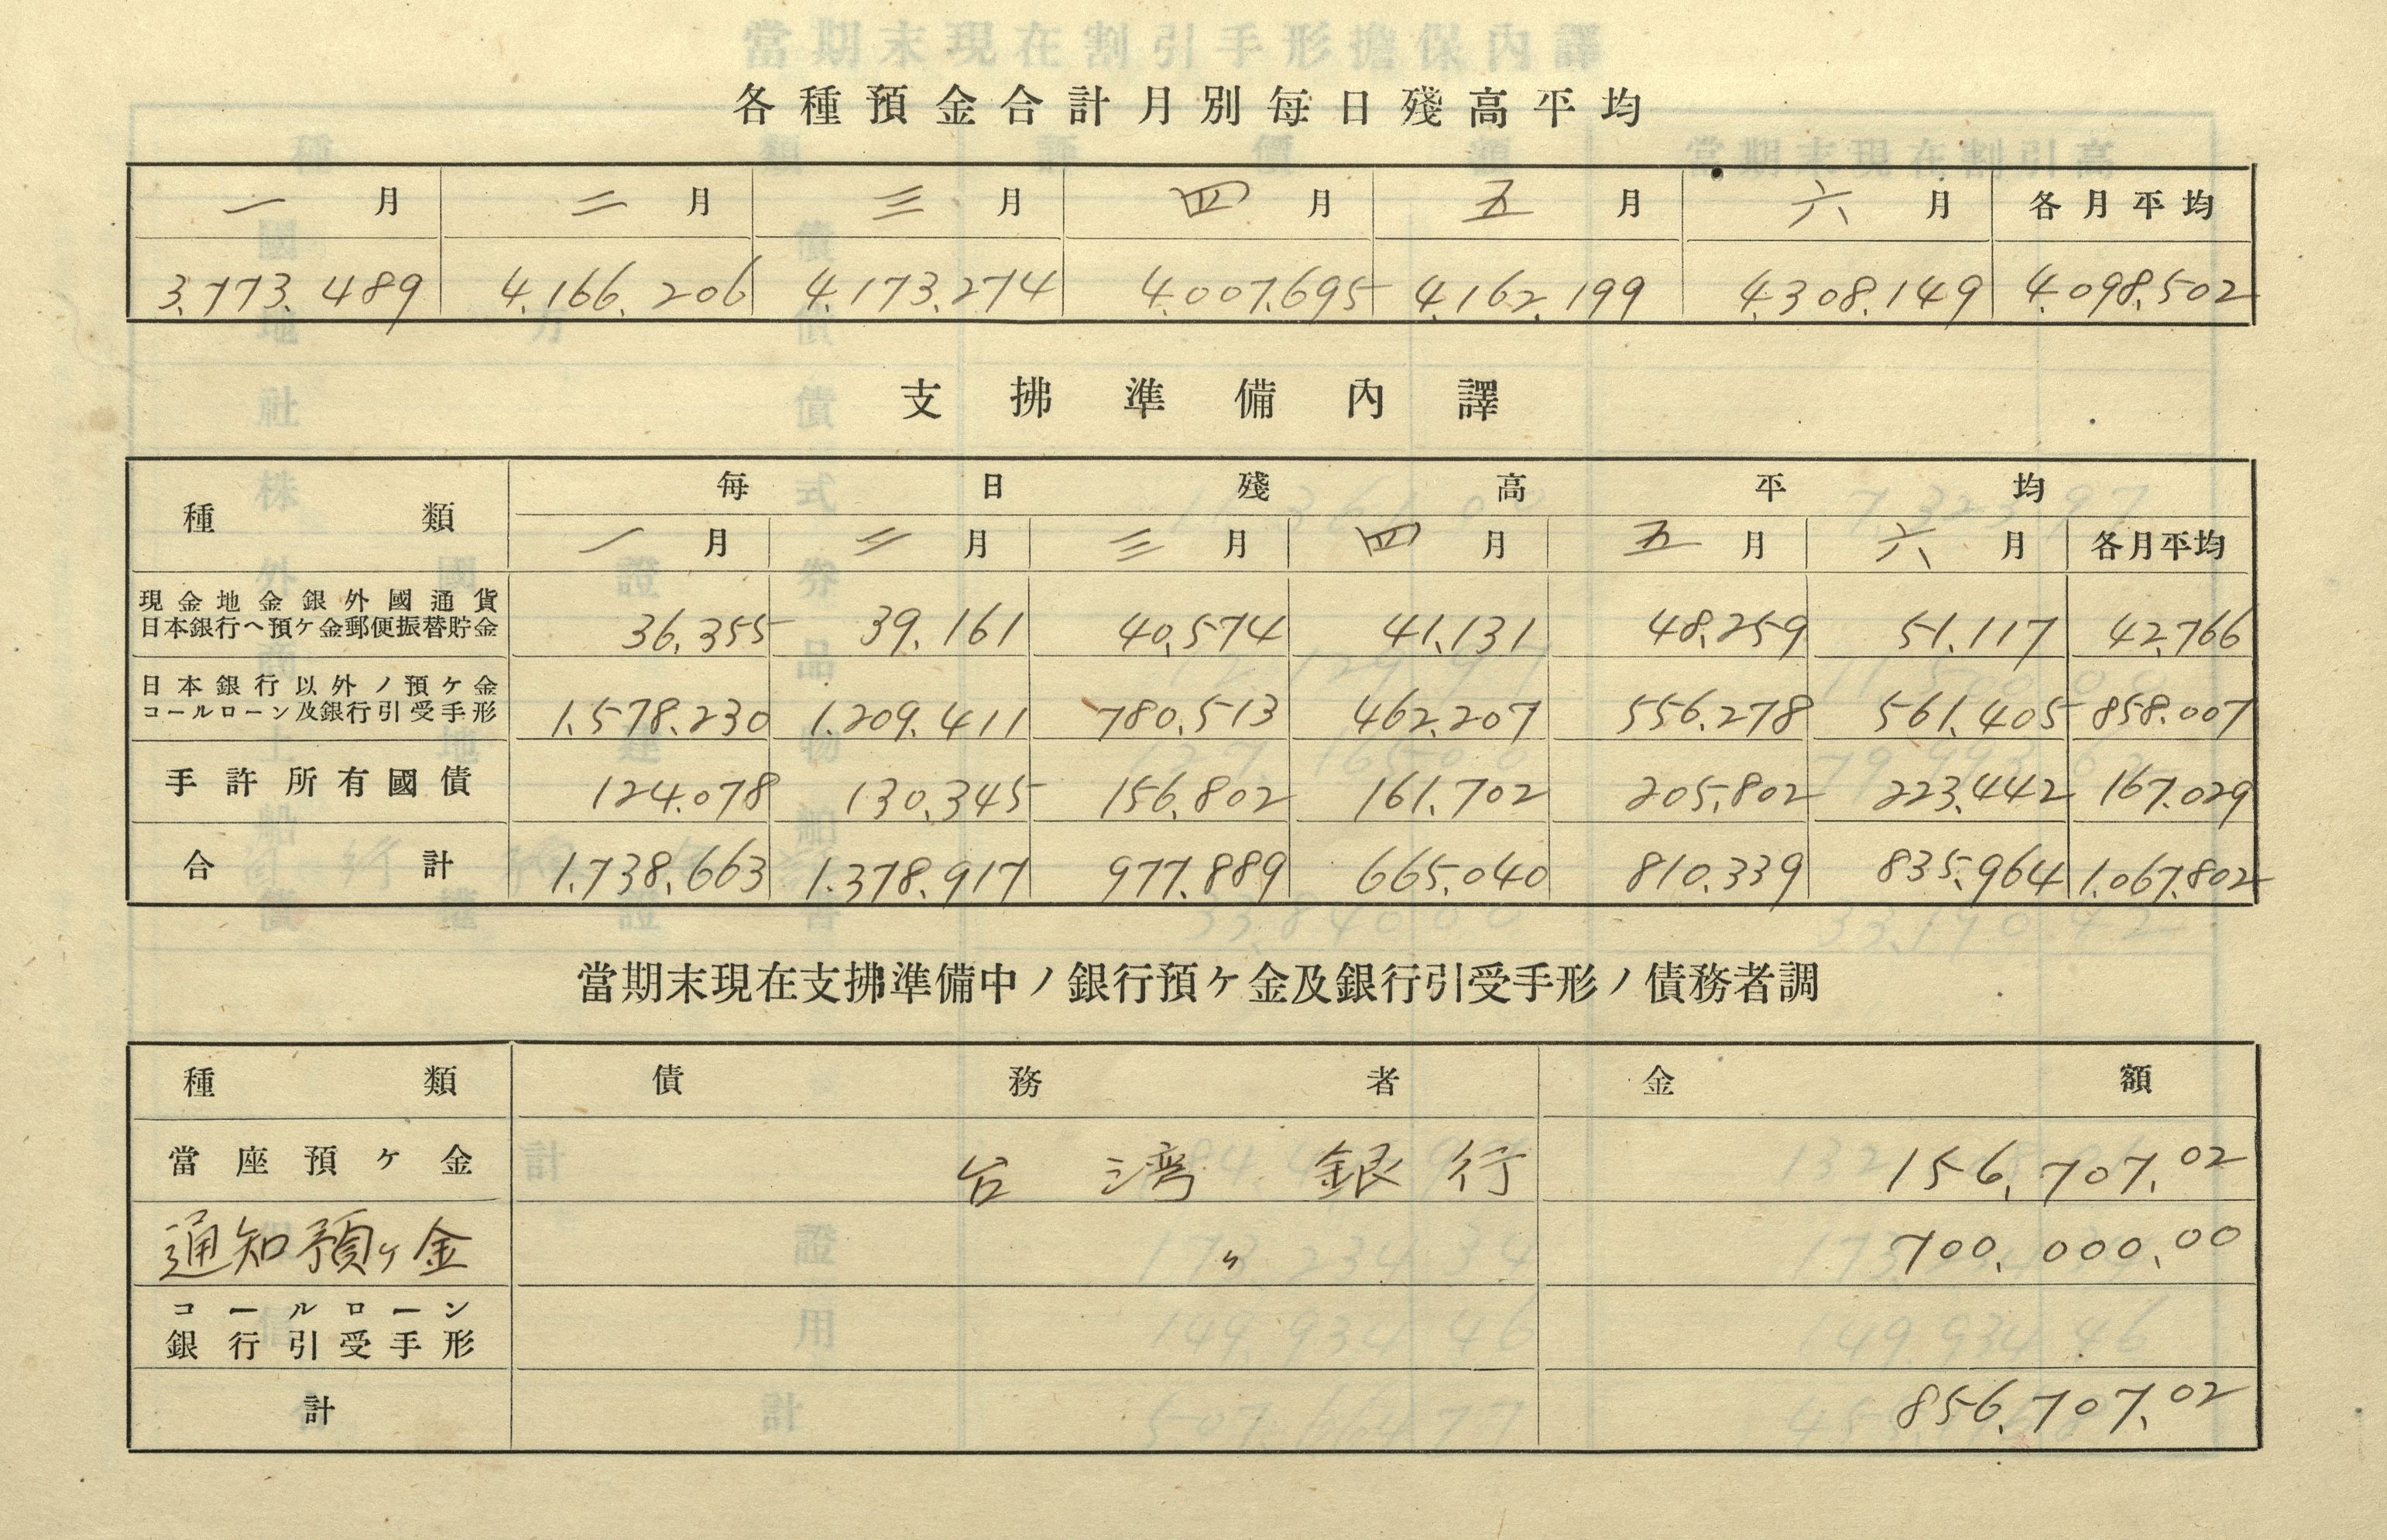 各種預金合計月別每日殘高平均
一月 二月 三月 四月 五月 六月 各月平均
3,773,489 4,166,206 4,173,274 4,007,695 4,162,199 4,308,149 4,098,502
支拂準備內譯
種類 每日殘高平均
一月 二月 三月 四月 五月 六月 各月平均
現金地金銀外國通貨
日本銀行ヘ預ケ金郵便振替貯金 36,355 39,161 40,574 41,131 48,259 51,117 42,766
日本銀行以外ノ預ケ金
コールローン及銀行引受手形 1,578,230 1,209,411 780,513 462,207 556,278 561,405 858,007
手許所有國債 124,078 130,345 156,802 161,702 205,802 223,442 167,029
合計 1,738,663 1,378,917 977,889 665,040 810,339 835,964 1,067,802
當期末現在支拂準備中ノ銀行預ケ金及銀行引受手形ノ債務者調
種類 債務者 金額
當座預ケ金 台湾銀行 156,707.02
通知預ケ金 〃 700,000.00
コールローン
銀行引受手形
計 856,707.02